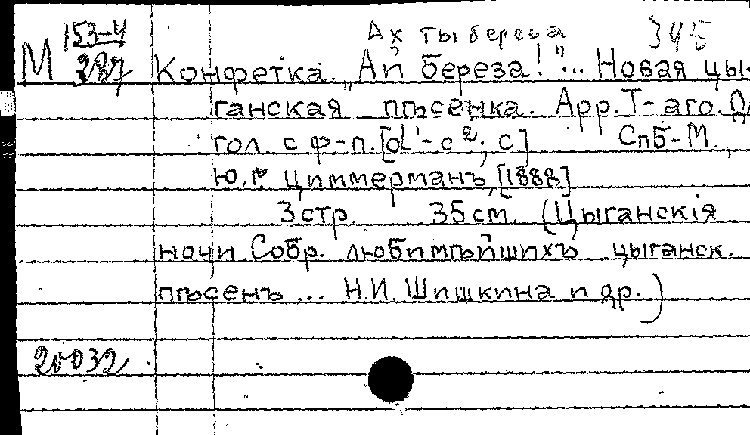 Ах ты береза 345
М 153-4 Конфетка. „Ай береза!"... Новая цы-
387 ганская пѣсенка. Арр. Т-аго.
гол. с ф-п. [d'-c²; c] СПб-М.,
Ю.Г. Циммерманъ, [1888]
3 стр. 35 см. (Цыганскія
ночи Собр. любимѣйшихъ цыганск.
пѣсенъ ... Н.И. Шишкина и др.)
20032